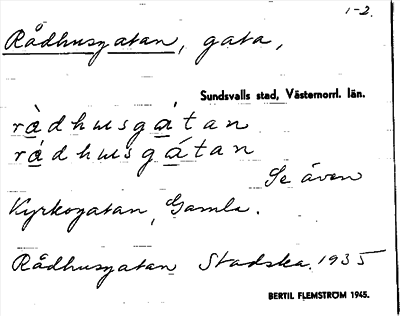 1-2.
Rådhusgatan, gata,
Sundsvalls stad, Västernorrl. län.
ràdhusgátan
rádhusgátan
Se även
Kyrkogatan, Gamla.
Rådhusgatan Stadska. 1935
BERTIL FLEMSTRÖM 1945.